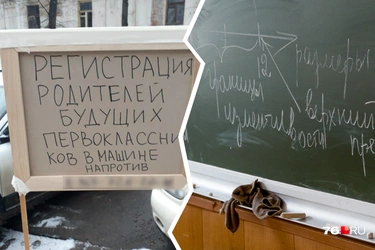 РЕГИСТРАЦИЯ
РОДИТЕЛЕЙ
БУДУЩИХ
ПЕРВОКЛАССНИ
КОВ В МАШИНЕ
НАПРОТИВ
размеры
12
границы
верхний
изменчивость
пре
76.RU